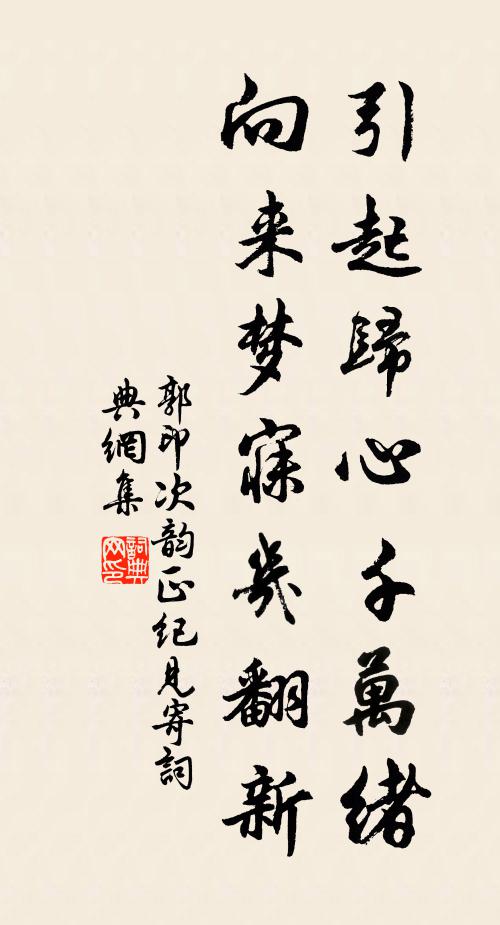 引起歸心千萬緒
向来梦寐几翻新
郭印次韵正纪見寄詞
典網集
詞典网印